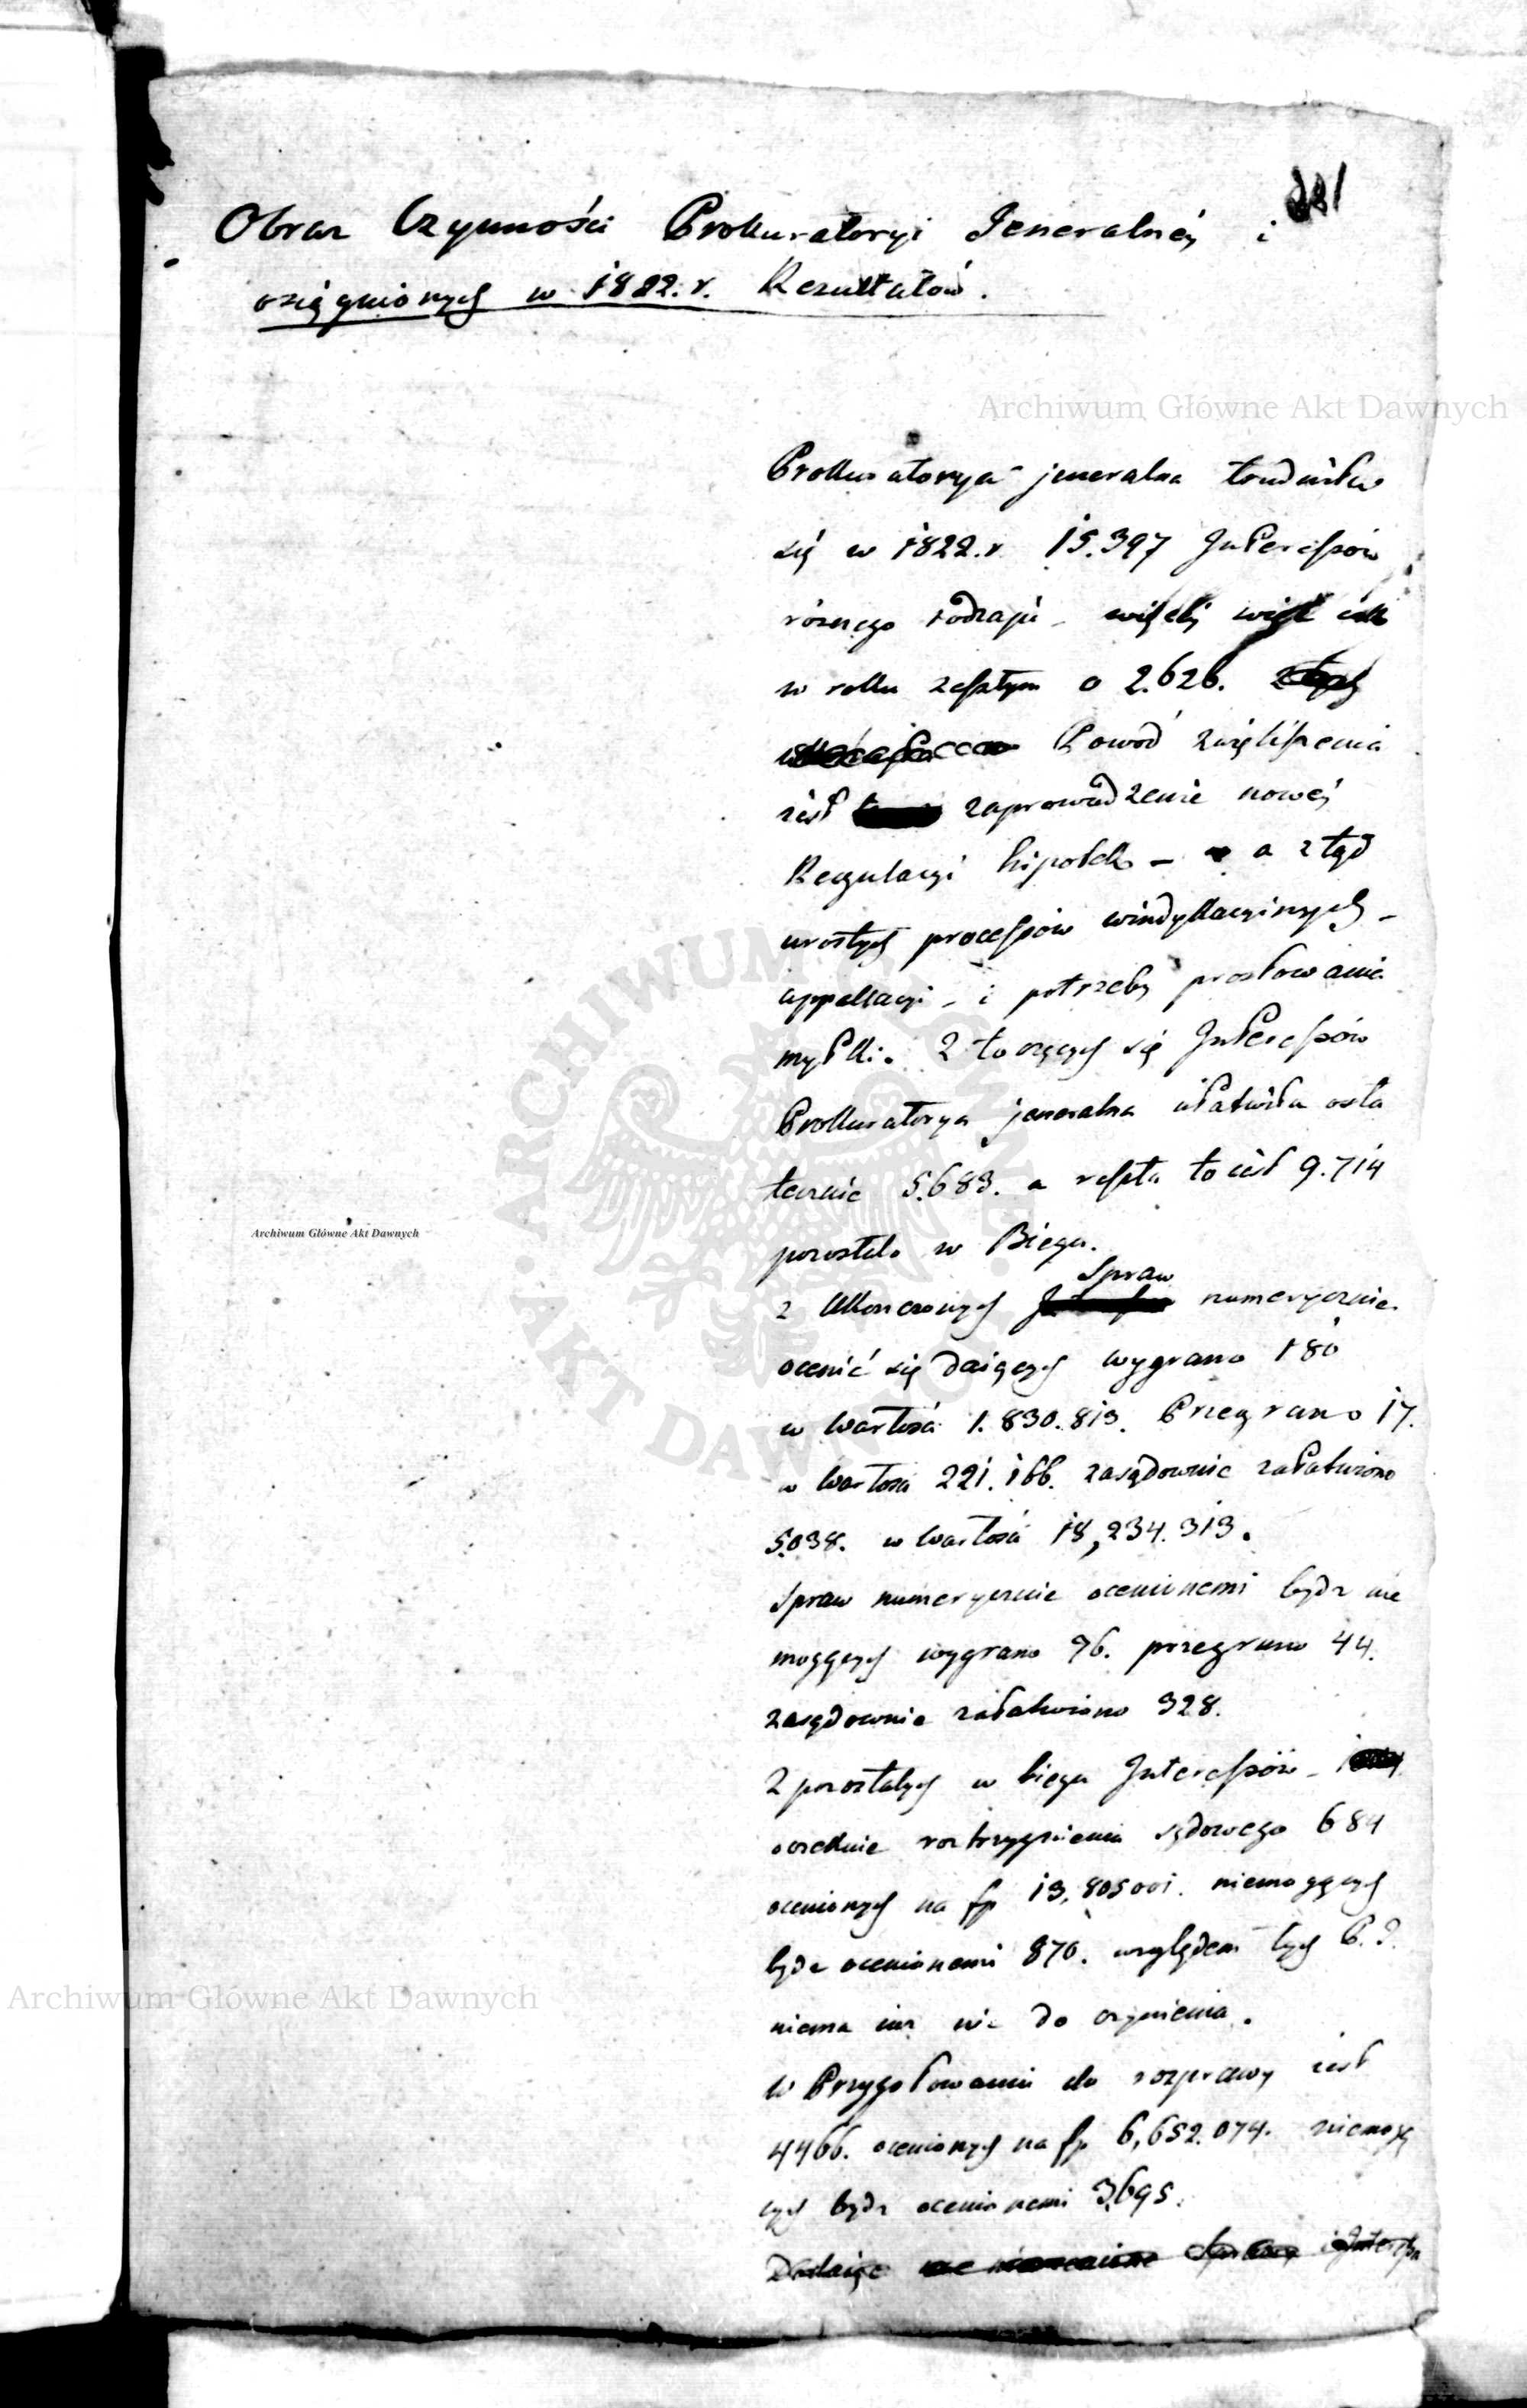 281
Obraz Czynności Prokuratoryi Jeneralnéj i
osiągnionych w 1822. r. Rezultatów.
Archiwum Główne Akt Dawnych
Prokuratorya jeneralna trudniła
się w 1822. r. 15.397 Interessów
róznego rodzaju - więcéj więc iak
w roku zeszłym o 2.626.
Powód zwiększenia
iest zaprowadzenie nowéj
Regulacyi hipotek - a ztąd
urosłych processów windykacyinych -
appellacyi - i potrzeby prostowania
myłki. Z toczących się Interessów
Prokuratorya jeneralna ułatwiła osta
tecznie 5.683. a reszta to iest 9.714
Archiwum Główne Akt Dawnych
pozostało w Biegu.
Spraw
z Ukonczonych numerycznie
ocenić się daiących wygrano 180
w Wartości 1.830.813. Przegrano 17.
w Wartości 221.166. zasądownie załatwiono
5.038. w Wartości 18,234.313.
Spraw numerycznie ocenionemi bydź nie
mogących wygrano 96. przegrano 44.
zasądownie załatwiono 328.
Z pozostałych w biegu Interessów -
oczekuie rostrzygnienia sądowego 684
ocenionych na fp 13,805001. niemogących
bydź ocenionemi 870. względem tych P. J.
Archiwum Główne Akt Dawnych
niema iuz nic do czynienia.
W Przygotowaniu do rozprawy iest
4466. ocenionych na fp 6,652.074. niemogą
cych bydź ocenionemi 3.695.
Dodaiąc
ARCHIWUM GŁÓWNE AKT DAWNYCH